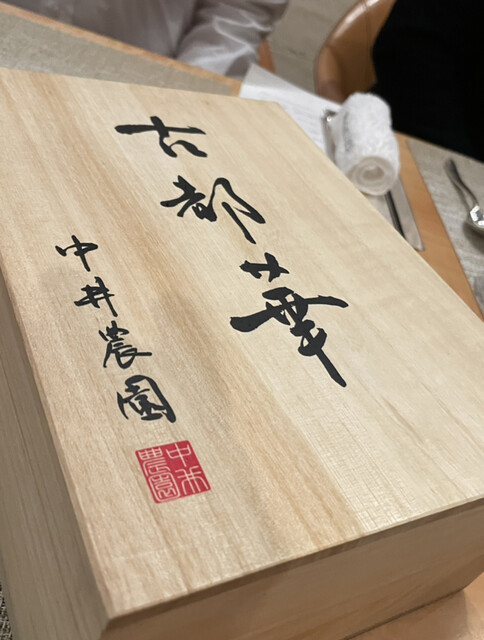 古都華
中井農園
中井
農園